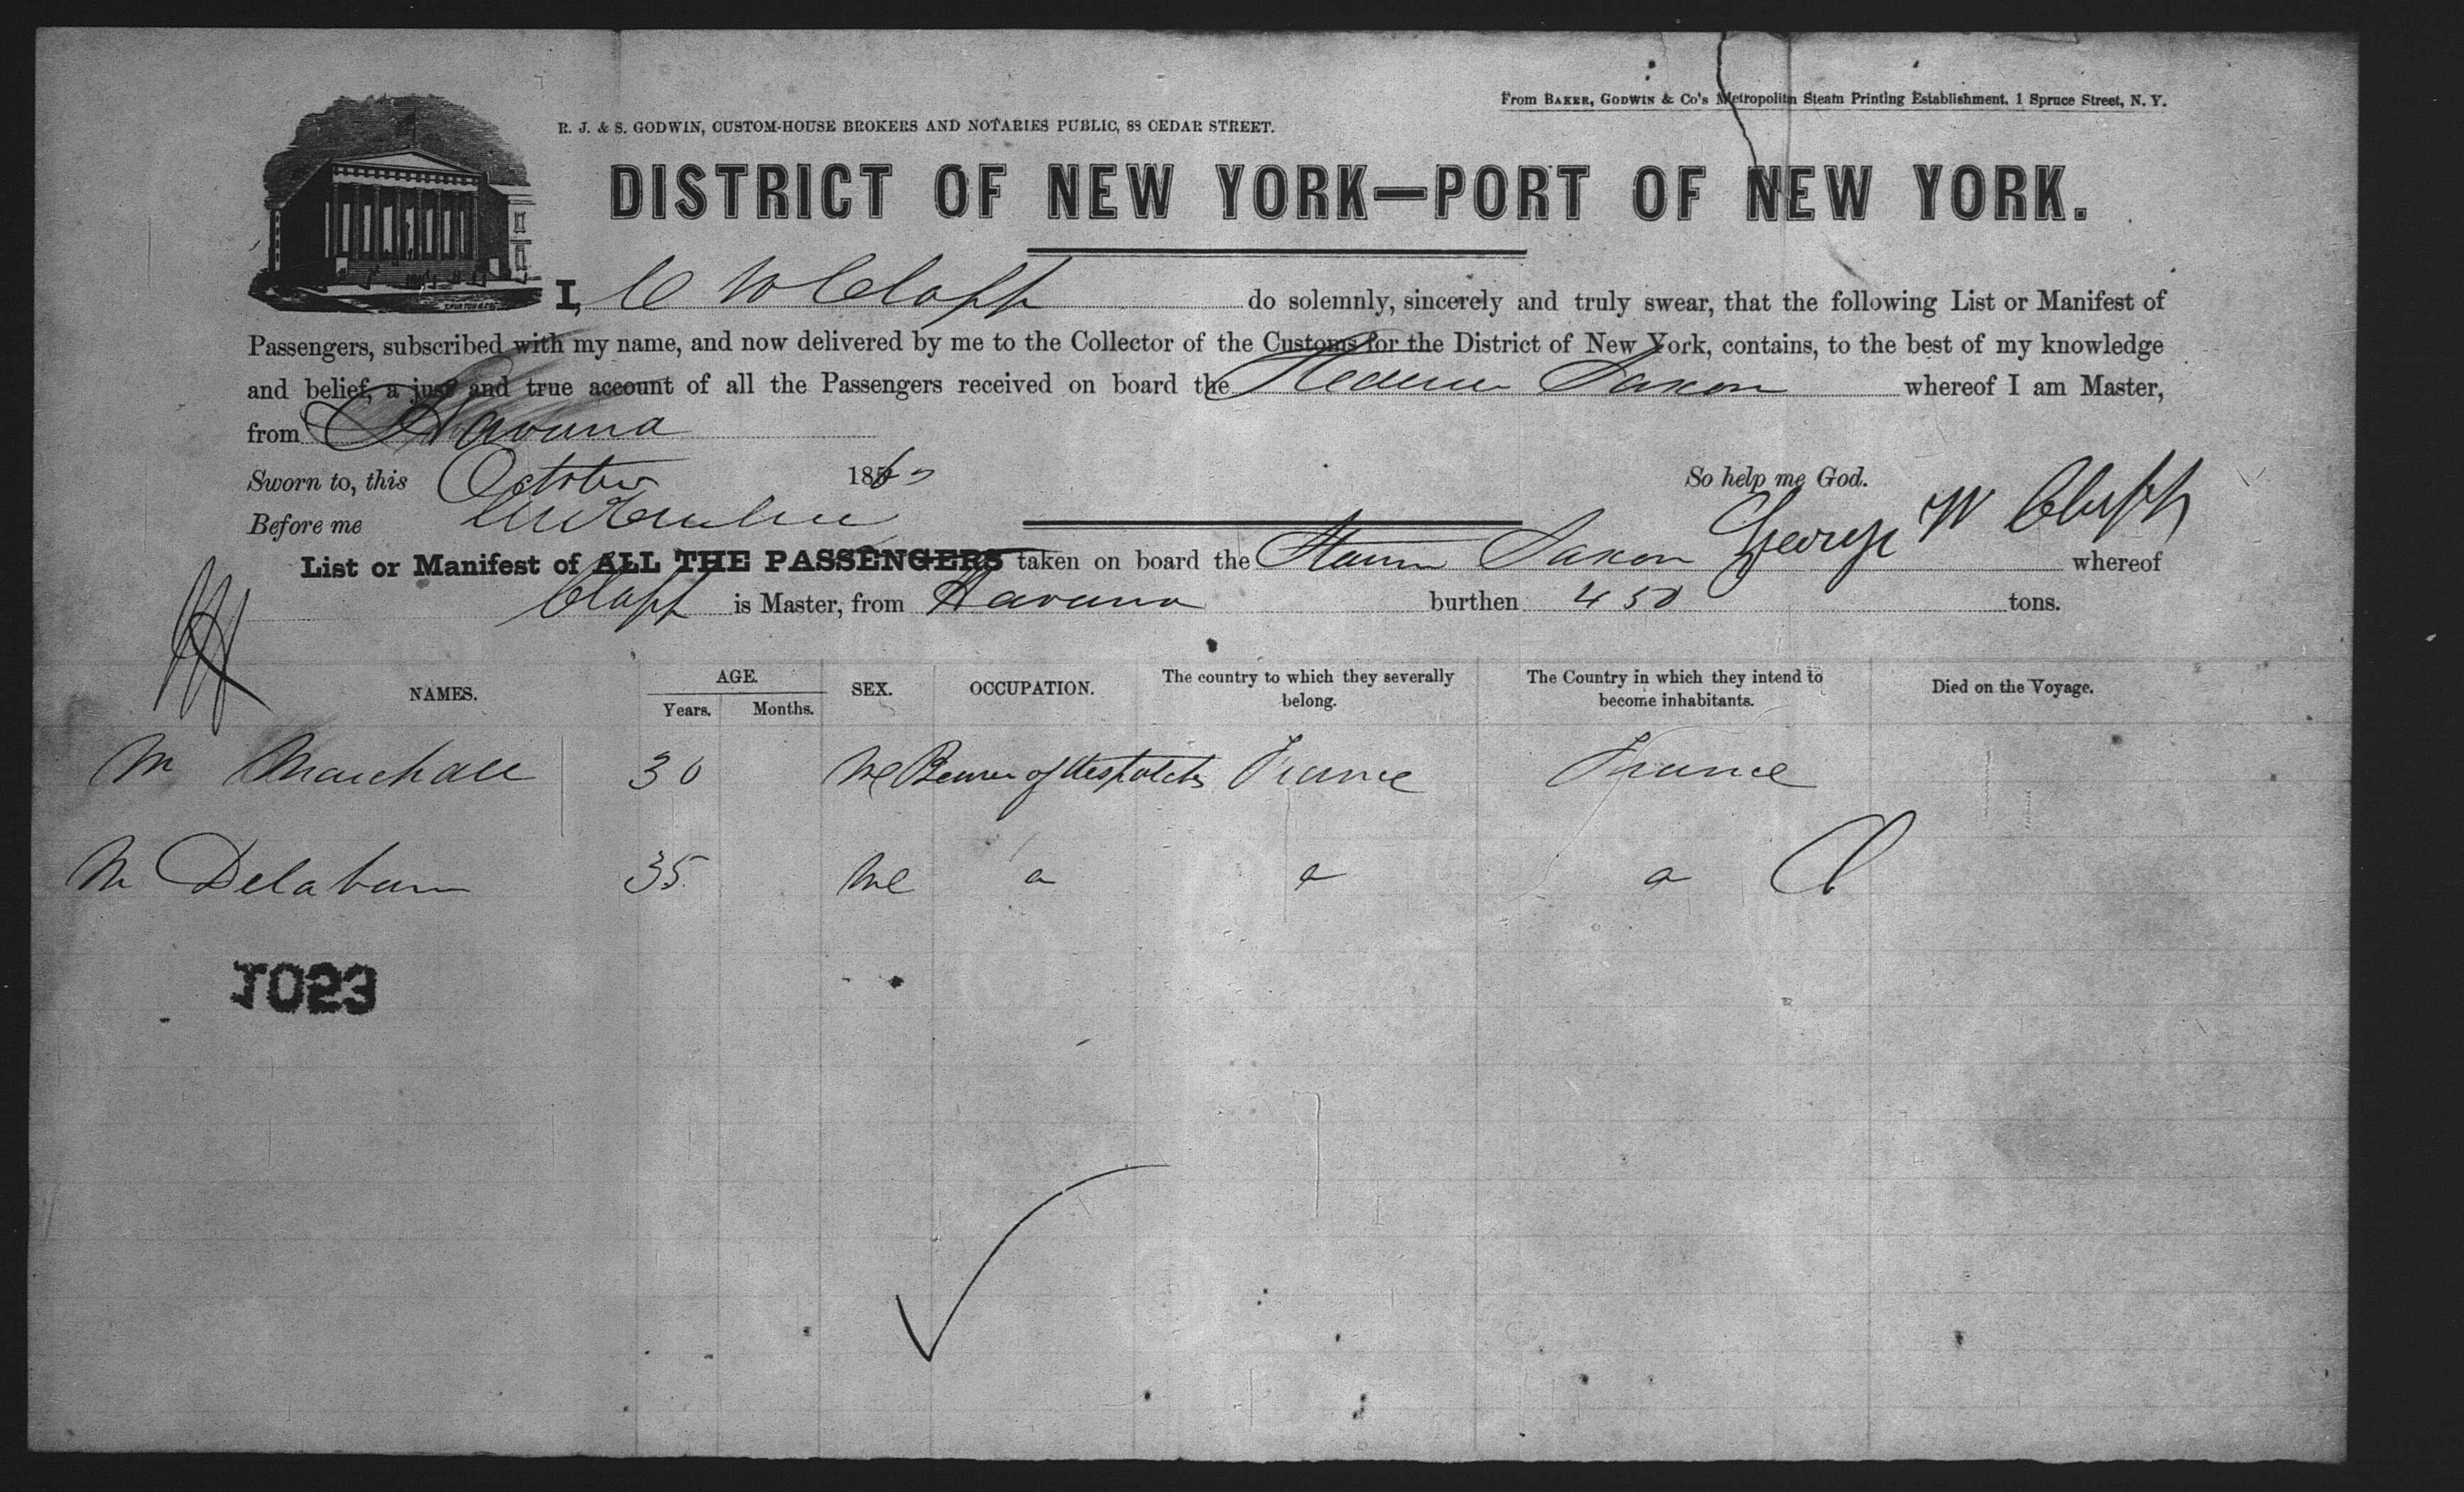 From BAKER, GODWIN & Co's Metropolitan Steam Printing Establishment, 1 Spruce Street, N. Y.
R. J. & S. GODWIN, CUSTOM-HOUSE BROKERS AND NOTARIES PUBLIC, 88 CEDAR STREET.
DISTRICT OF NEW YORK—PORT OF NEW YORK.
I, W Clapp do solemnly, sincerely and truly swear, that the following List or Manifest of
Passengers, subscribed with my name, and now delivered by me to the Collector of the Customs for the District of New York, contains, to the best of my knowledge
and belief, a just and true account of all the Passengers received on board the Saxon whereof I am Master,
from Havana
Sworn to, this October 186 So help me God.
Before me George W Clapp
List or Manifest of ALL THE PASSENGERS taken on board the Saxon whereof
Clapp is Master, from Havana burthen 450 tons.
NAMES. AGE. Years. Months. SEX. OCCUPATION. The country to which they severally belong. The Country in which they intend to become inhabitants. Died on the Voyage.
M 30 Me Bearer of despatches France France
M 35 Me
1023